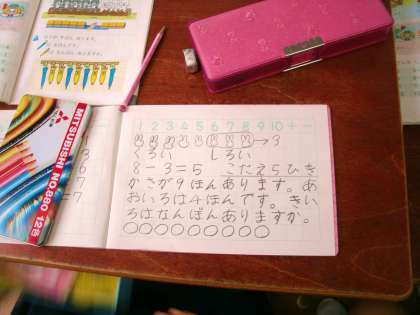 MITSUBISHI NO.880 12色
1 2 3 4 5 6 7 8 9 10 + -
→3
くろい しろい
8-3=5 こたえ5ひき
かさが9ほんあります。あ
おいろは4ほんです。きい
ろはなんぼんありますか。
=7